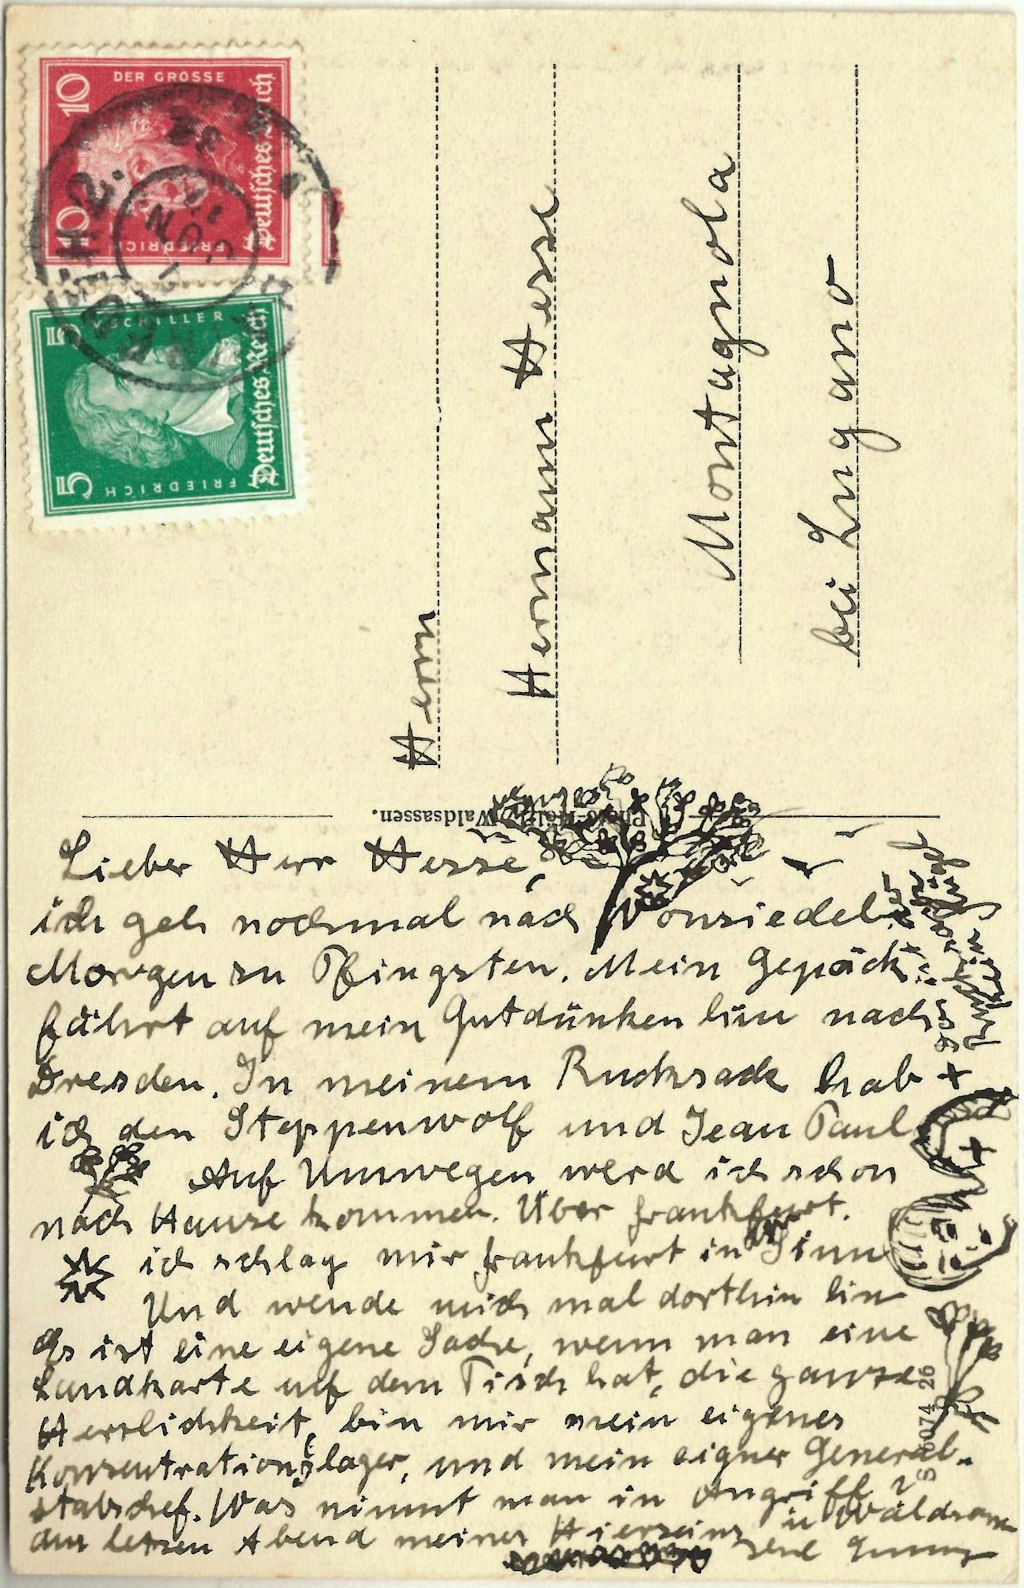 DER GROSSE
10
10
FRIEDRICH
Deutsches Reich
5
SCHILLER
5
FRIEDRICH
Deutsches Reich
Herrn
Hermann Hesse
Montagnola
bei Lugano
Waldsassen.
Lieber Herr Hesse,
ich geh nochmal nach Wonsiedel
Morgen zu Pfingsten. Mein Gepäck
fährt auf mein Gutdünken hin nach
Dresden. In meinem Rucksack hab
ich den Steppenwolf und Jean Paul
Auf Umwegen werd ich schon
nach Hause kommen. Über Frankfurt.
ich schlag mir Frankfurt in Sinn
Und wende mich mal dorthin hin
Es ist eine eigene Sache, wenn man eine
Landkarte auf dem Tisch hat, die ganze
Herrlichkeit, bin mir mein eigenes
Konzentrationslager, und mein eigner General-
stabschef. Was nimmt man in Angriff?
am letzen Abend meines Hierseins in Waldsassen
6074 26